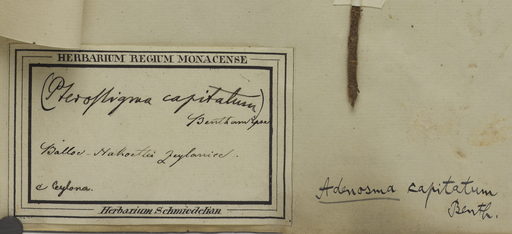 HERBARIUM REGIUM MONACENSE
(Pterostigma capitatum)
Bentham ipse
Zeylanice.
e Ceylona.
Herbarium Schmiedelian
Adenosma capitatum
Benth.